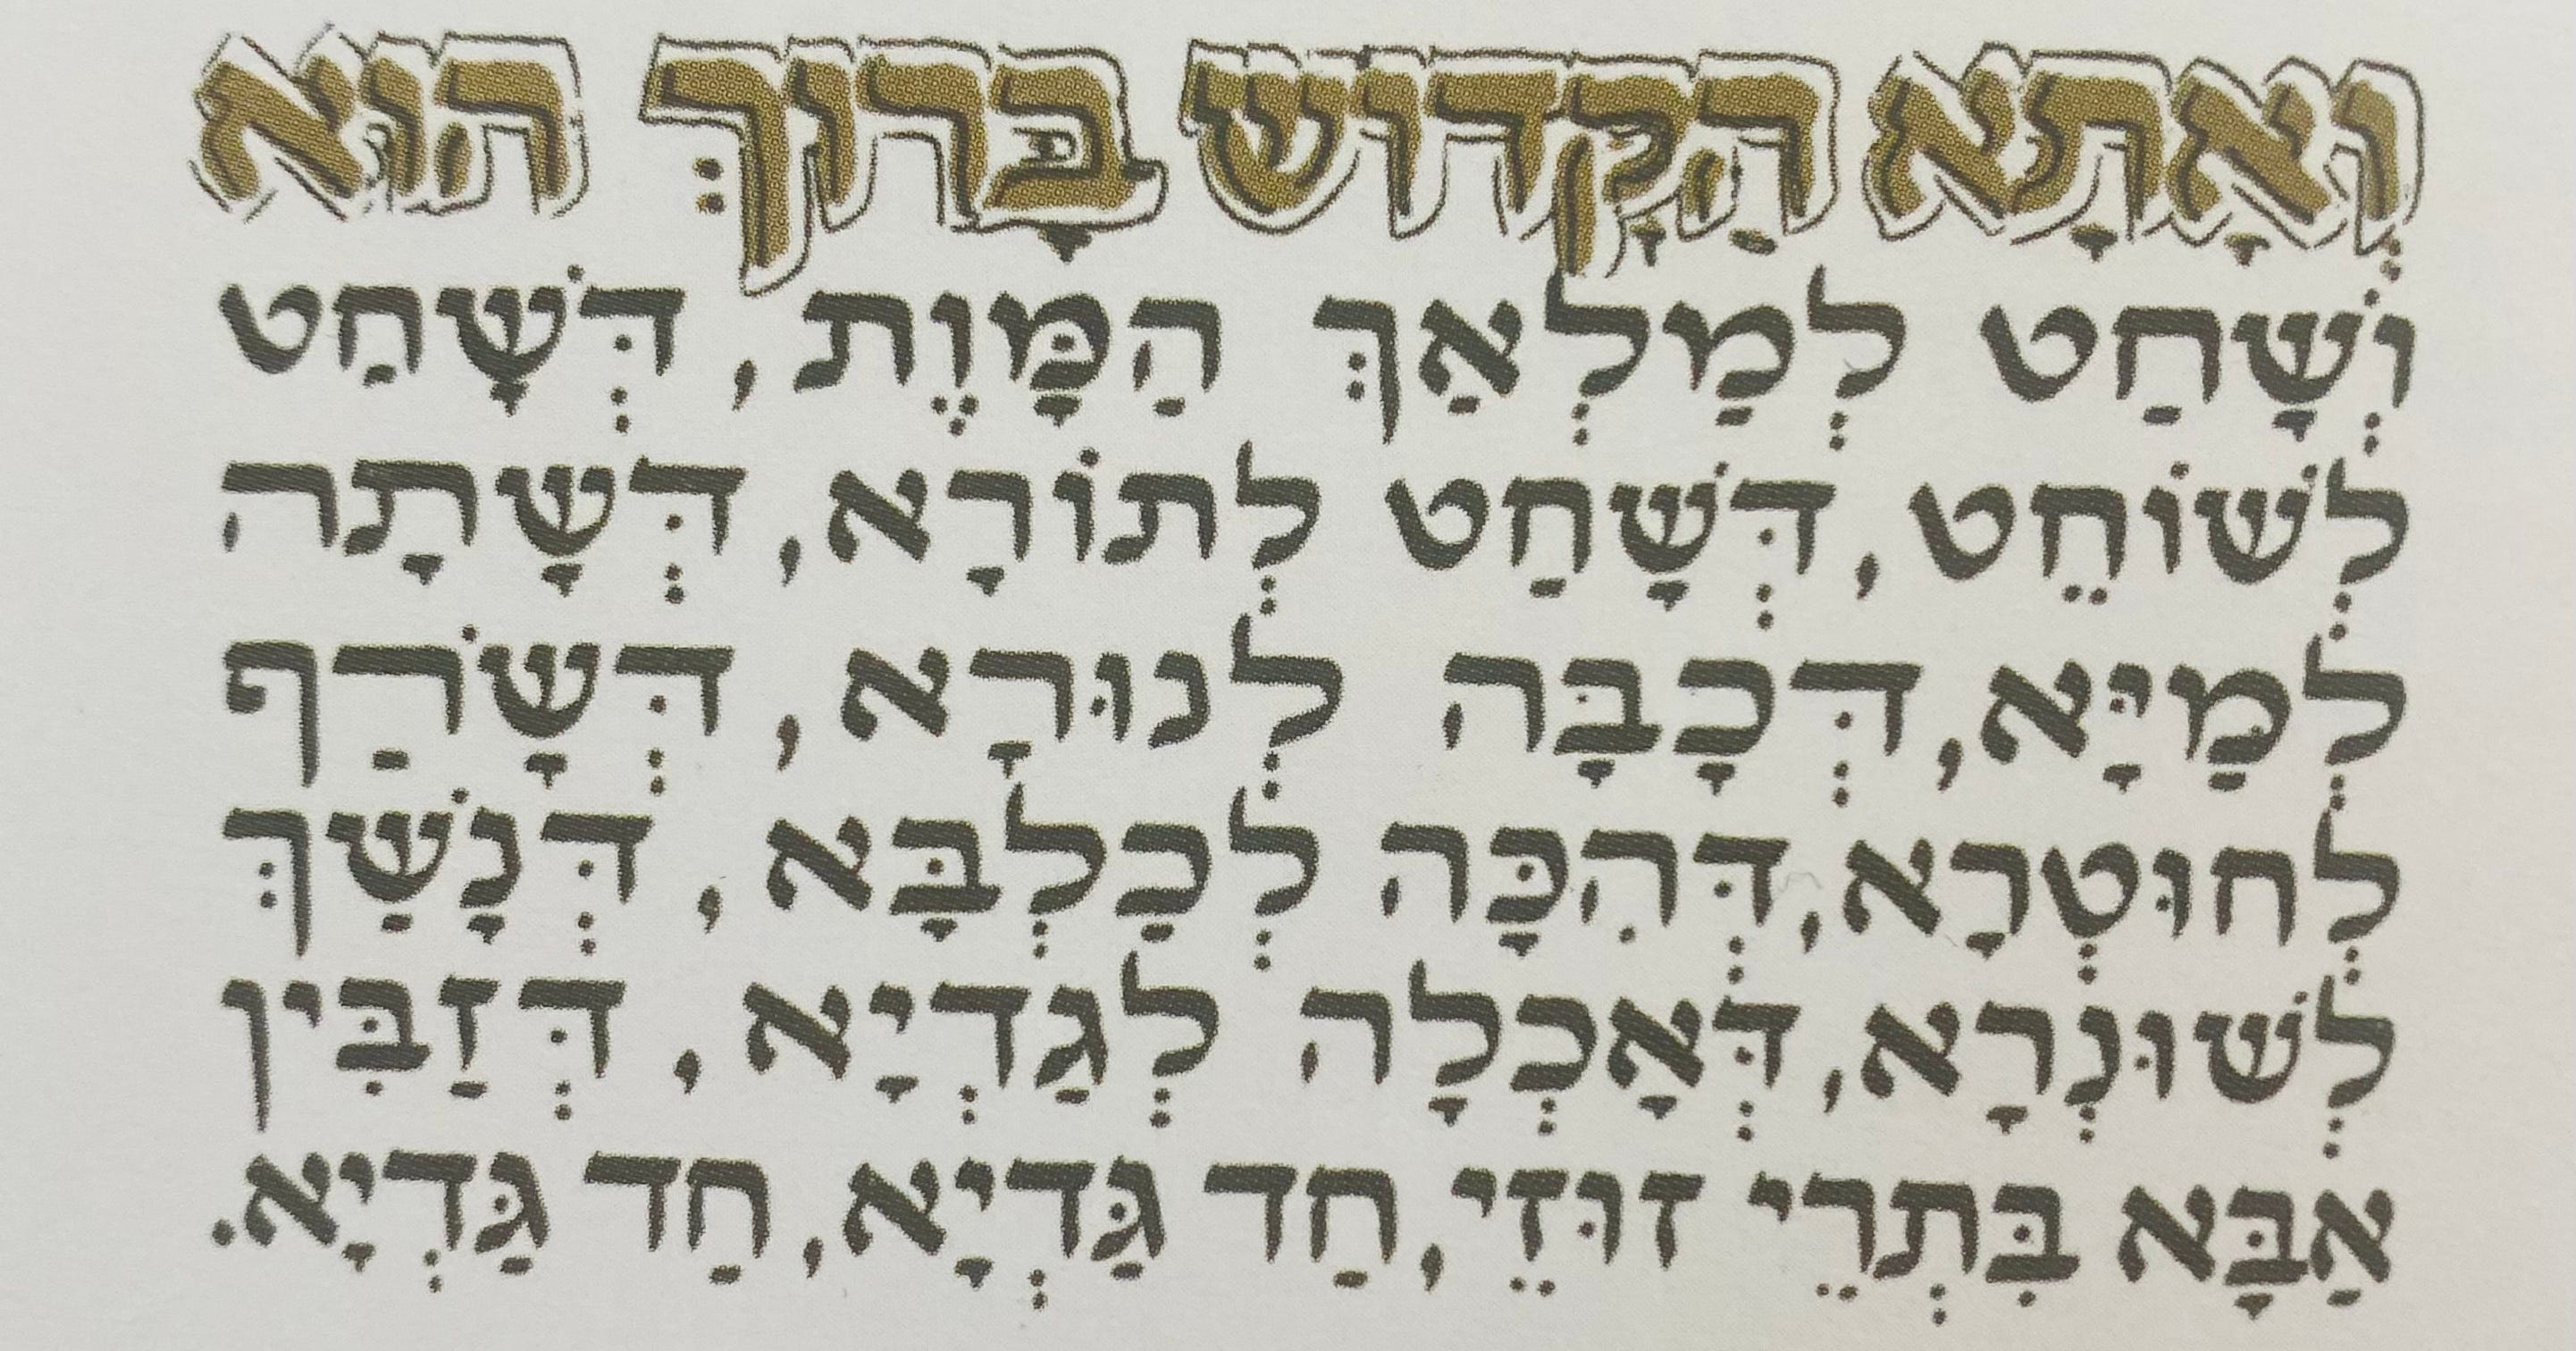 וְאָתָא הַקָּדוֹשׁ בָּרוּךְ הוּא
וְשָׁחַט לְמַלְאַךְ הַמָּוֶת, דְּשָׁחַט
לְשׁוֹחֵט, דְּשָׁחַט לְתוֹרָא, דְּשָׁתָה
לְמַיָּא, דְּכָבָּה לְנוּרָא, דְּשָׂרַף
לְחוּטְרָא, דְּהִכָּה לְכַלְבָּא, דְּנָשַׁךְ
לְשׁוּנְרָא, דְּאָכְלָה לְגַדְיָא, דְּזַבִּין
אַבָּא בִּתְרֵי זוּזֵי, חַד גַּדְיָא, חַד גַּדְיָא.